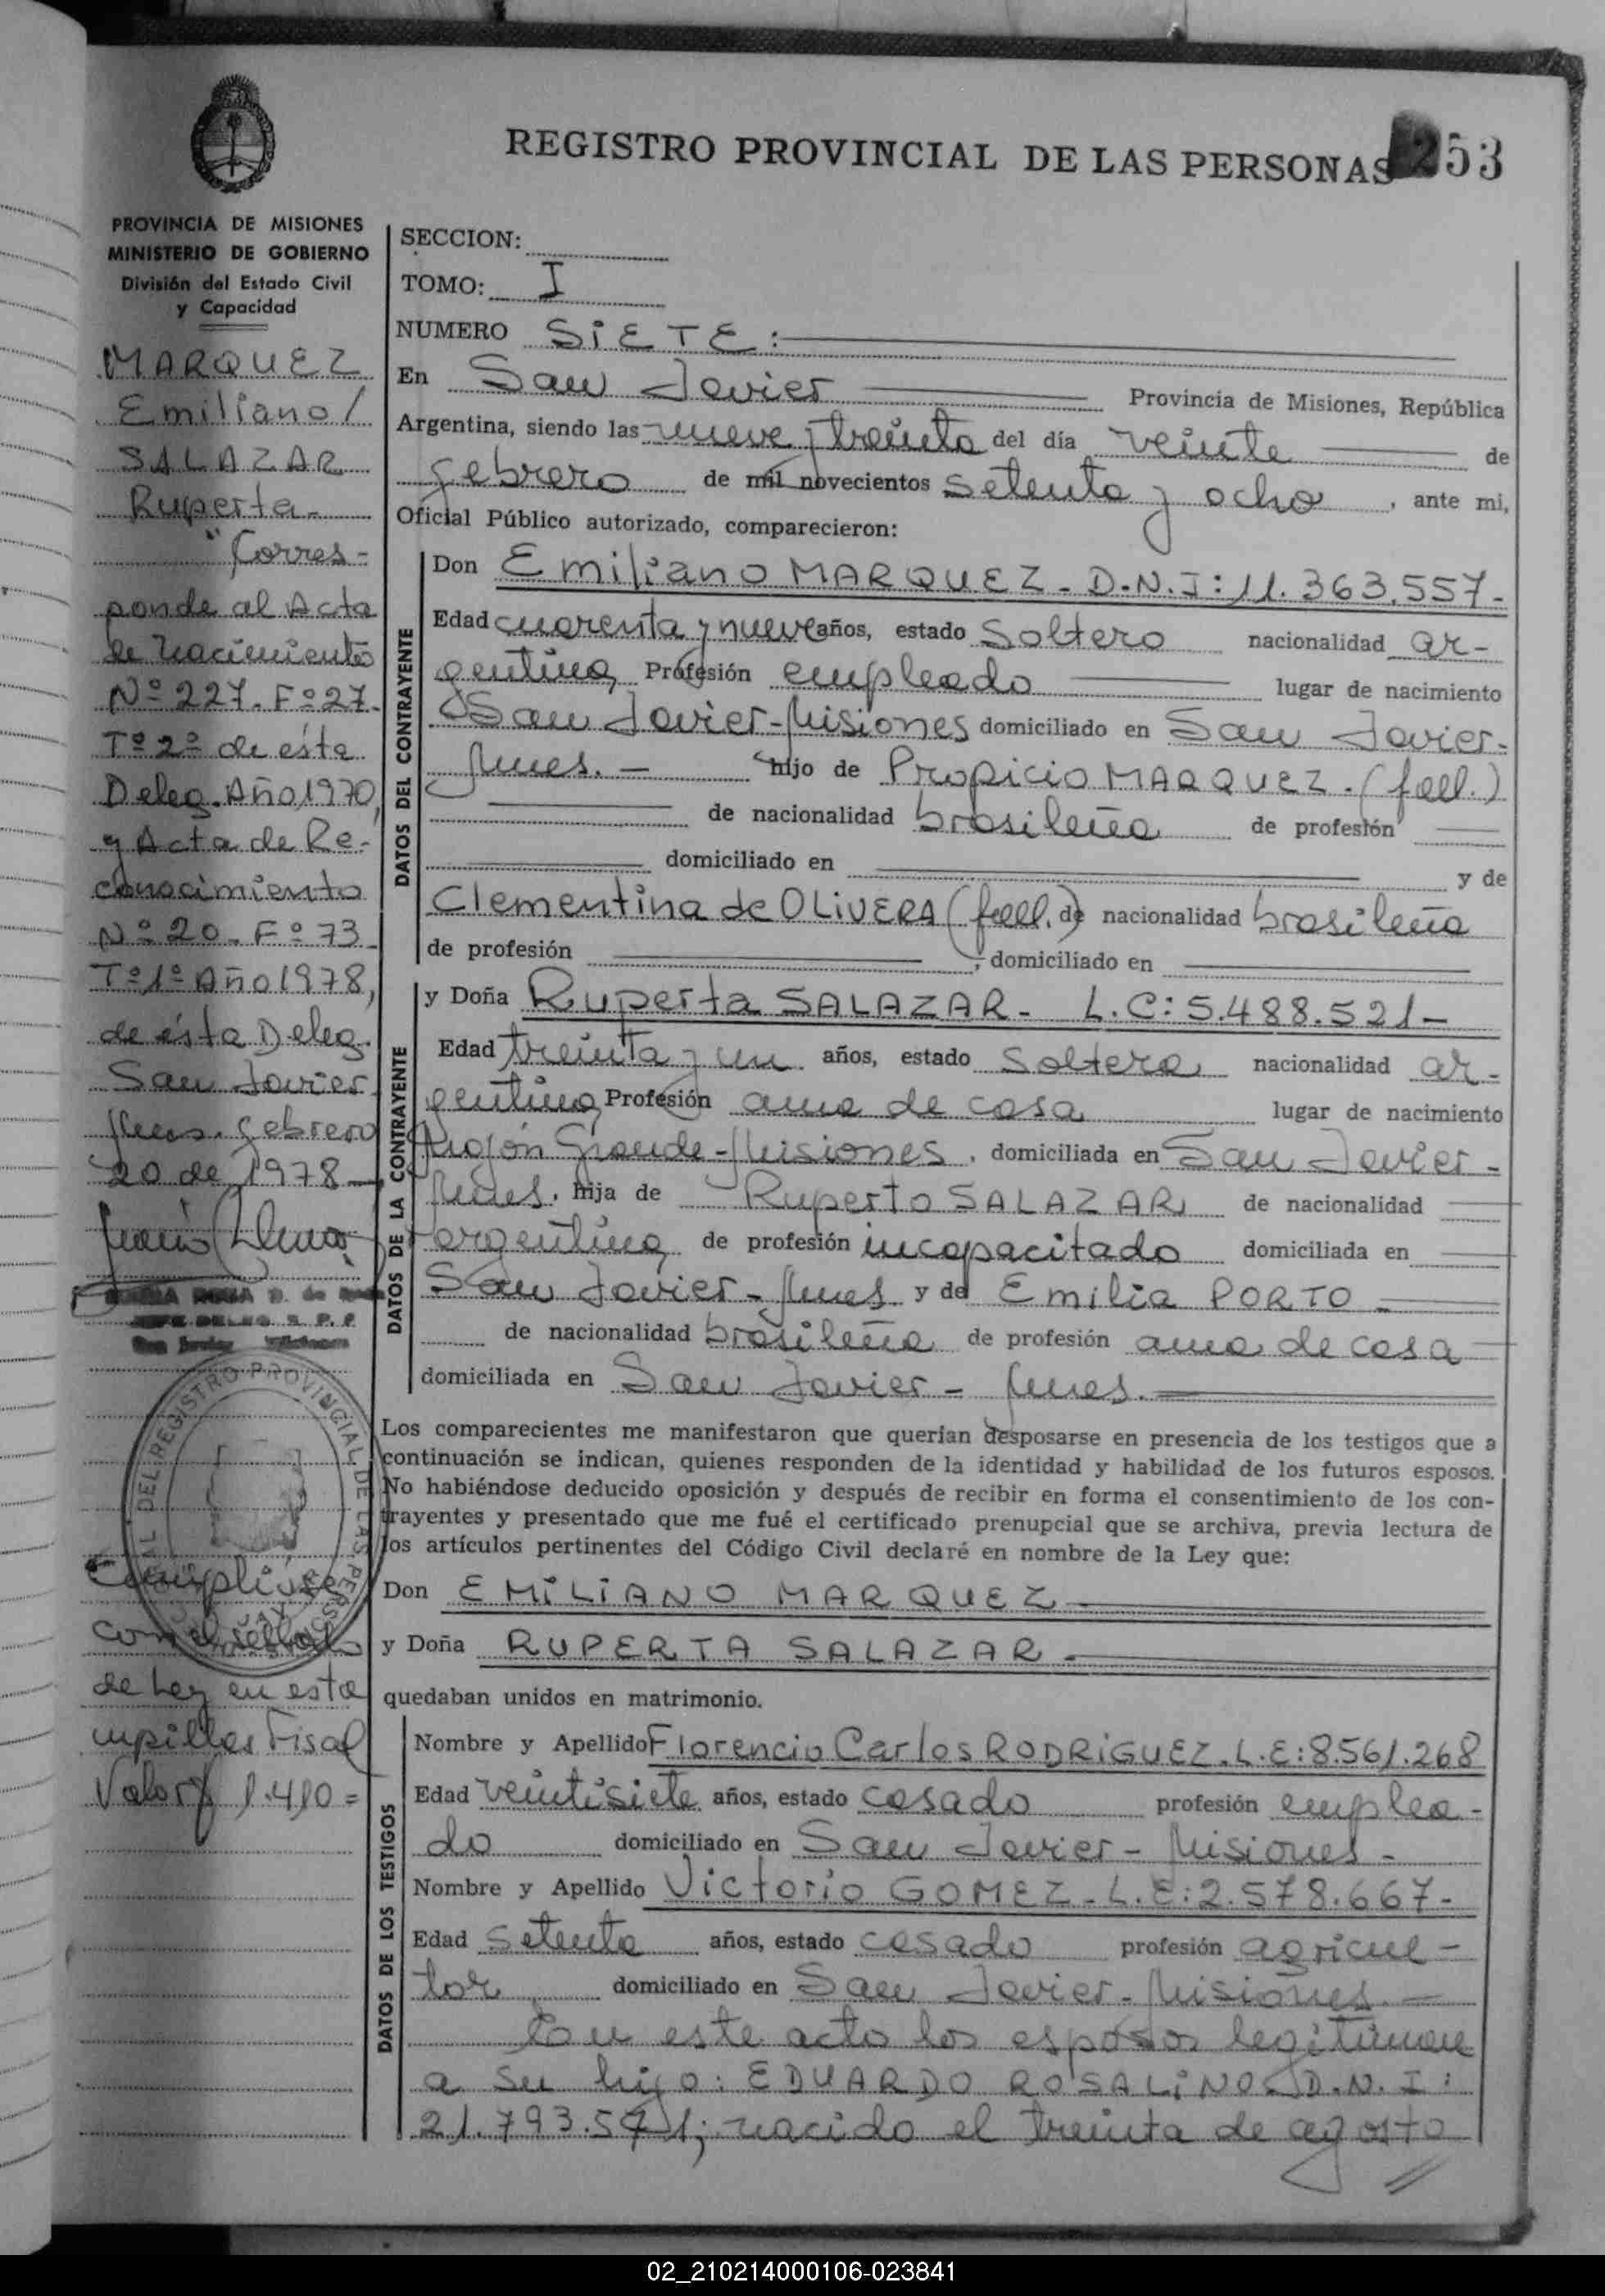 REGISTRO PROVINCIAL DE LAS PERSONAS 253
PROVINCIA DE MISIONES
MINISTERIO DE GOBIERNO
División del Estado Civil
y Capacidad
MARQUEZ
Emiliano/
SALAZAR
Ruperta-
"Corres-
ponde al Acta
de nacimiento
Nº 227. Fº 27.
Tº 2º de ésta
Deleg. Año 1970,
y Acta de Re-
conocimiento
Nº 20. Fº 73
Tº 1º Año 1978,
de ésta Deleg.
San Javier
Mnes. febrero
20 de 1978-
San Javier Misiones
DEL REGISTRO PROVINCIAL DE LAS PERSONAS
Cumplióse
con el sellado
de Ley en esta
Fiscal
Valor $ 1.410=
SECCION:
TOMO: I
NUMERO SiETE:
En San Javier Provincia de Misiones, República
Argentina, siendo las nueve y treinta del día veinte de
febrero de mil novecientos setenta y ocho, ante mi,
Oficial Público autorizado, comparecieron:
DATOS DEL CONTRAYENTE
Don Emiliano MARQUEZ - D.N.I: 11.363.557-
Edad cuarenta y nueve años, estado soltero nacionalidad ar-
gentina, Profesión empleado lugar de nacimiento
San Javier-Misiones domiciliado en San Javier-
Mnes.- hijo de Propicio MARQUEZ. (fall.)
de nacionalidad brasileña de profesión
domiciliado en y de
Clementina de OLIVERA (fall.) de nacionalidad brasileña
de profesión , domiciliado en
DATOS DE LA CONTRAYENTE
y Doña Ruperta SALAZAR- L.C: 5.488.521-
Edad treinta y un años, estado soltera nacionalidad ar-
gentina, Profesión ama de casa lugar de nacimiento
Mojón Grande-Misiones, domiciliada en San Javier-
Mnes. hija de Ruperto SALAZAR de nacionalidad
argentina, de profesión incapacitado domiciliada en
San Javier-Mnes y de Emilia PORTO-
de nacionalidad brasileña de profesión ama de casa
domiciliada en San Javier- Mnes.
Los comparecientes me manifestaron que querían desposarse en presencia de los testigos que a
continuación se indican, quienes responden de la identidad y habilidad de los futuros esposos.
No habiéndose deducido oposición y después de recibir en forma el consentimiento de los con-
trayentes y presentado que me fué el certificado prenupcial que se archiva, previa lectura de
los artículos pertinentes del Código Civil declaré en nombre de la Ley que:
Don EMiLiANO MARQUEZ
y Doña RUPERTA SALAZAR
quedaban unidos en matrimonio.
DATOS DE LOS TESTIGOS
Nombre y Apellido Florencio Carlos RODRiGUEZ. L.E: 8.561.268
Edad veintisiete años, estado casado profesión emplea-
do domiciliado en San Javier- Misiones-
Nombre y Apellido Victorio GOMEZ- L.E: 2.578.667-
Edad setenta años, estado casado profesión agricul-
tor domiciliado en San Javier-Misiones.-
En este acto los esposos legitiman
a su hijo: EDUARDO ROSALiNO- D.N.I:
21.793.571; nacido el treinta de agosto
02_210214000106-023841